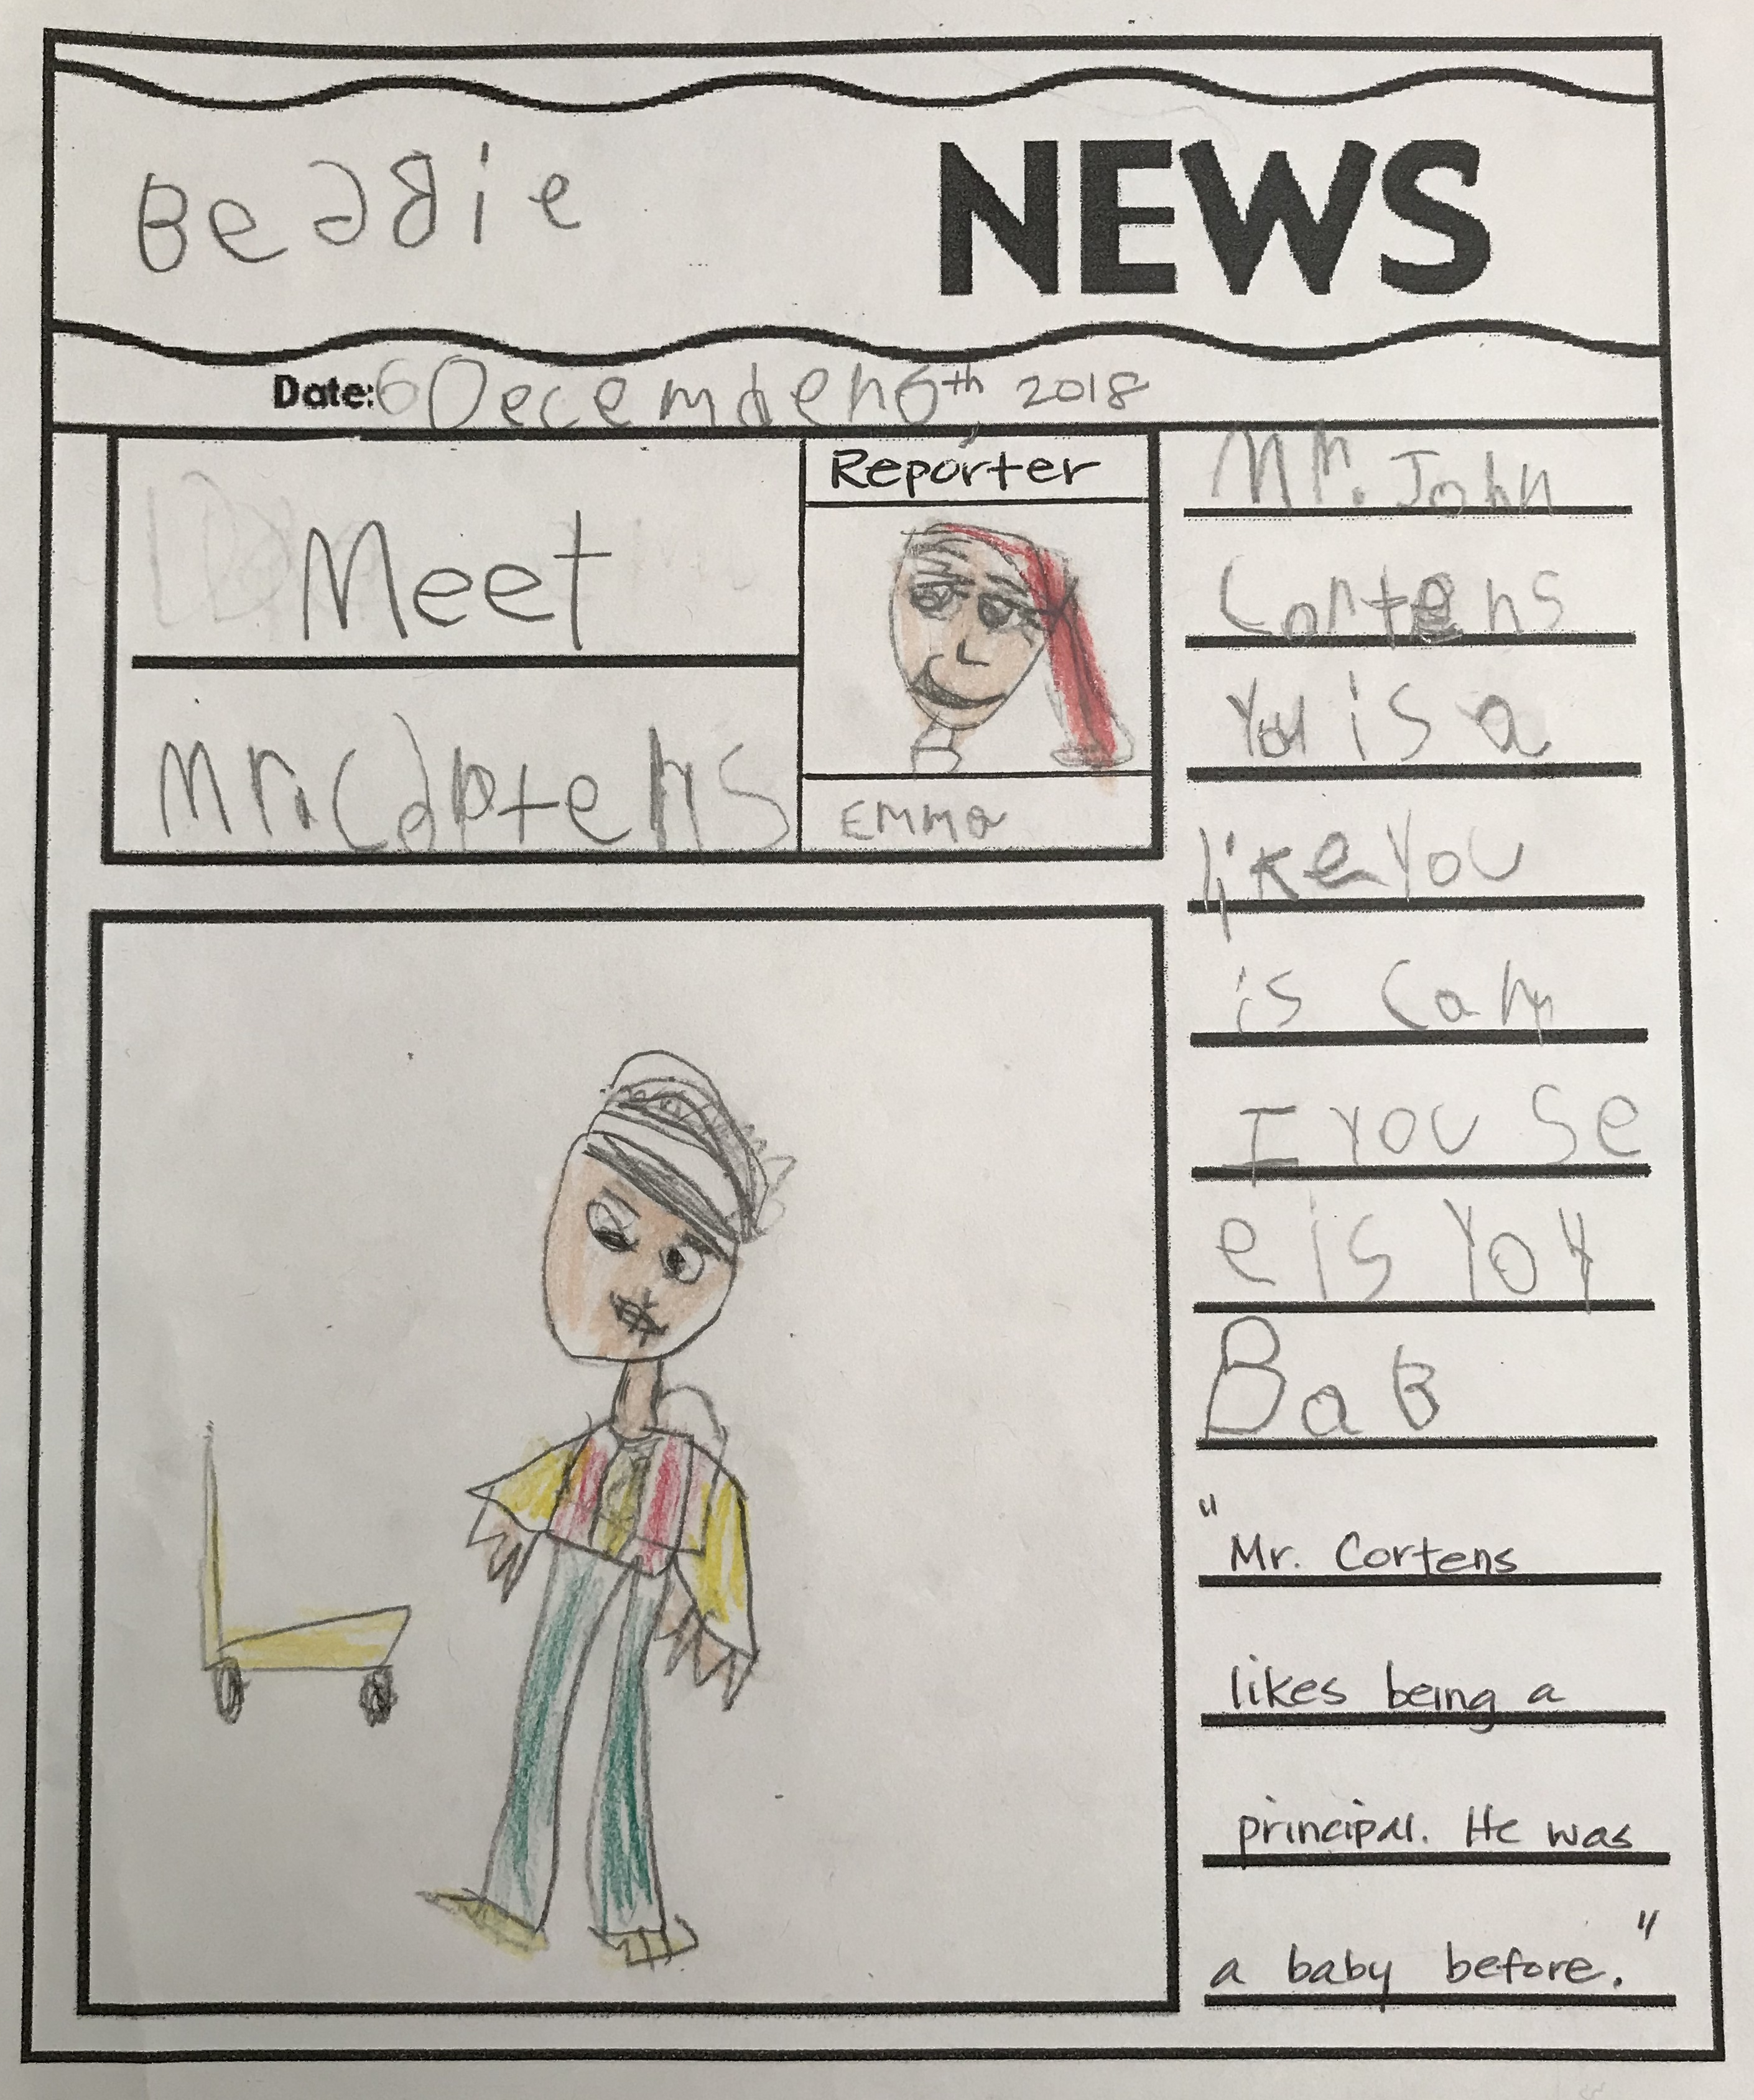 Beadie NEWS
Date: 6 Decemden 6th 2018
Meet
mr. Cortens
Reporter
Emma
Mr. John
Cortens
You is a
like You
is Can
I You Se
e is YoY
BaB
"Mr. Cortens
likes being a
principal. He was
a baby before."